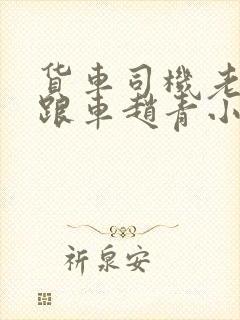 货車司機老
跟車趙青小
祈泉安